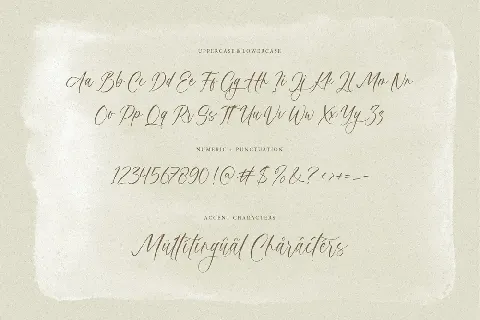 UPPERCASE & LOWERCASE
Aa Bb Cc Dd Ee Ff Gg Hh Ii Jj Kk Ll Mm Nn
Oo Pp Qq Rr Ss Tt Uu Vv Ww Xx Yy Zz
NUMERIC + PUNCTUATION
1234567890!@#$%&?‹›+=_-
ACCENT CHARACTERS
Multilingüäl Chäráctérs